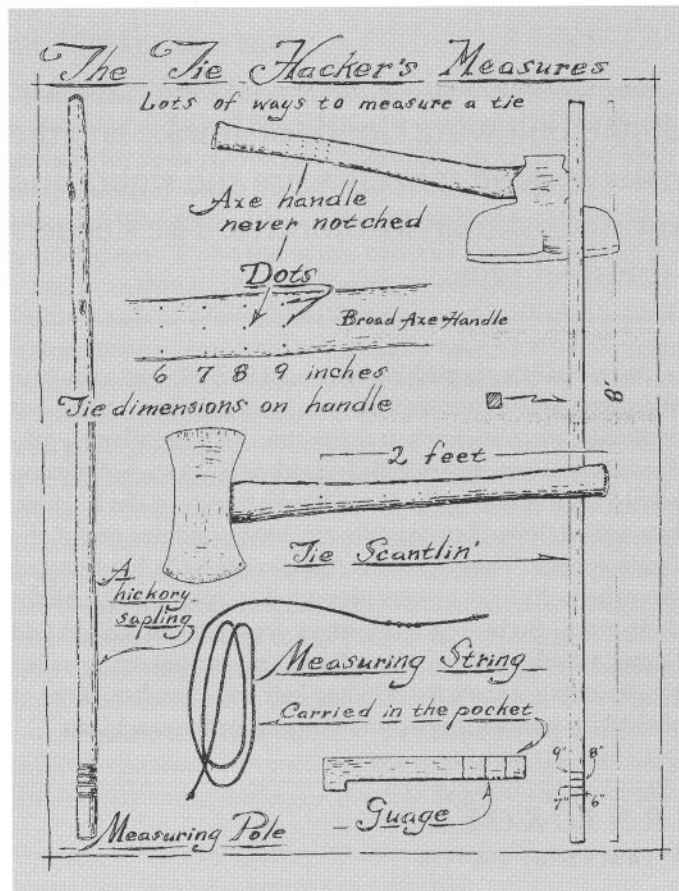 The Tie Hacker's Measures
Lots of ways to measure a tie
Axe handle
never notched
Dots
Broad Axe Handle
6 7 8 9 inches
Tie dimensions on handle
8'
2 feet
Tie Scantlin'
A
hickory
sapling
Measuring String
Carried in the pocket
9" 8"
7" 6"
Guage
Measuring Pole